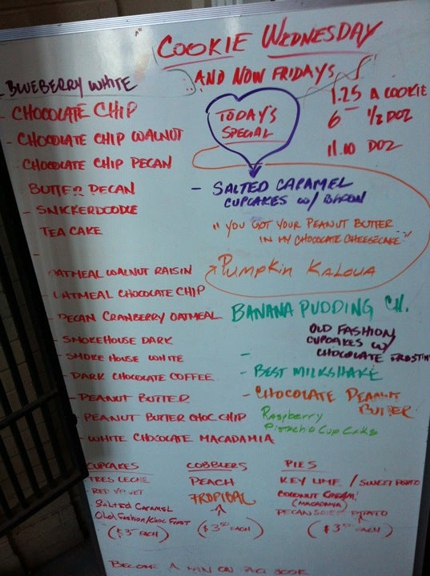 COOKIE WEDNESDAY
AND NOW FRIDAYS
1.25 A COOKIE
6 1/2 DOZ
11.10 DOZ
- BLUEBERRY WHITE
- CHOCOLATE CHIP
- CHOCOLATE CHIP WALNUT
CHOCOLATE CHIP PECAN
BUTTER PECAN
- SNICKERDOODLE
TEA CAKE
OATMEAL WALNUT RAISIN
OATMEAL CHOCOLATE CHIP
- PECAN CRANBERRY OATMEAL
- SMOKEHOUSE DARK
- SMOKE HOUSE WHITE
- DARK CHOCOLATE COFFEE
- PEANUT BUTTER
- PEANUT BUTTER CHOC CHIP
- WHITE CHOCOLATE MACADAMIA
TODAY'S
SPECIAL
- SALTED CARAMEL
CUPCAKES W/ BACON
"YOU GOT YOUR PEANUT BUTTER
IN MY CHOCOLATE CHEESECAKE"
PUMPKIN KALOUA
BANANA PUDDING CH.
OLD FASHION
CUPCAKES W/
CHOCOLATE FROSTIN
- BEST MILKSHAKE
- CHOCOLATE PEANUT
BUTTER
Raspberry
Pistachio Cupcakes
CUPCAKES
TRES LECHE
RED VELVET
SALTED CARAMEL
Old Fashion/Choc Frost
EACH)
COBBLERS
PEACH
TROPICAL
EACH)
PIES
KEY LIME / SWEET POTATO
COCONUT CREAM
(MACADAMIA)
PECAN SWEET POTATO
EACH)
BECOME A ON